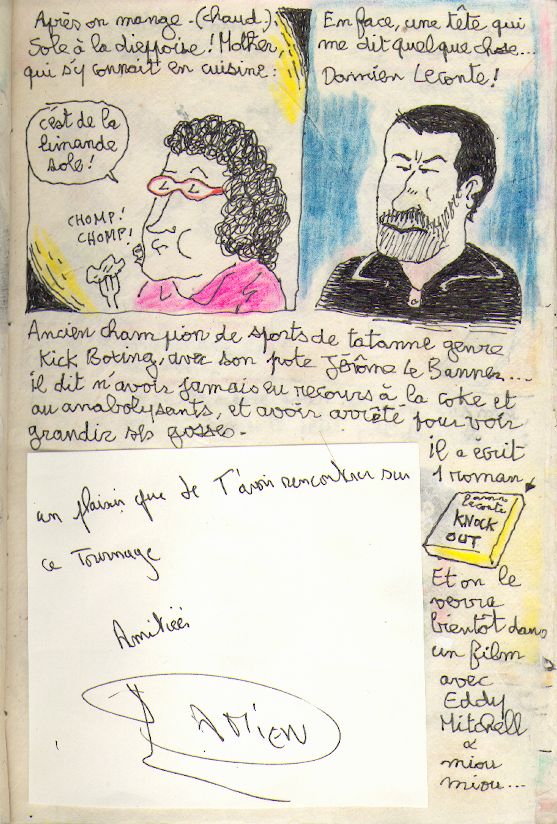 Après on mange. (chaud)
Sole à la dieppoise! Molher,
qui s'y connait en cuisine:
c'est de la
limande
sole!
CHOMP!
CHOMP!
En face, une tête qui
me dit quelque chose...
Damien Leconte!
Ancien champion de sports de tatanne genre
Kick Boxing, avec son pote Jérôme Le Banner...
il dit n'avoir jamais eu recours à la coke et
au anabolysants, et avoir arrêté pour voir
grandir ses gosses.
il a écrit
1 roman
Leconte
KNOCK
OUT
Et on le
verra
bientôt dans
un film
avec
Eddy
Mitchell
&
miou
miou...
un plaisir que de T'avoir rencontrer sur
ce Tournage
Amitiées
DAMIEN